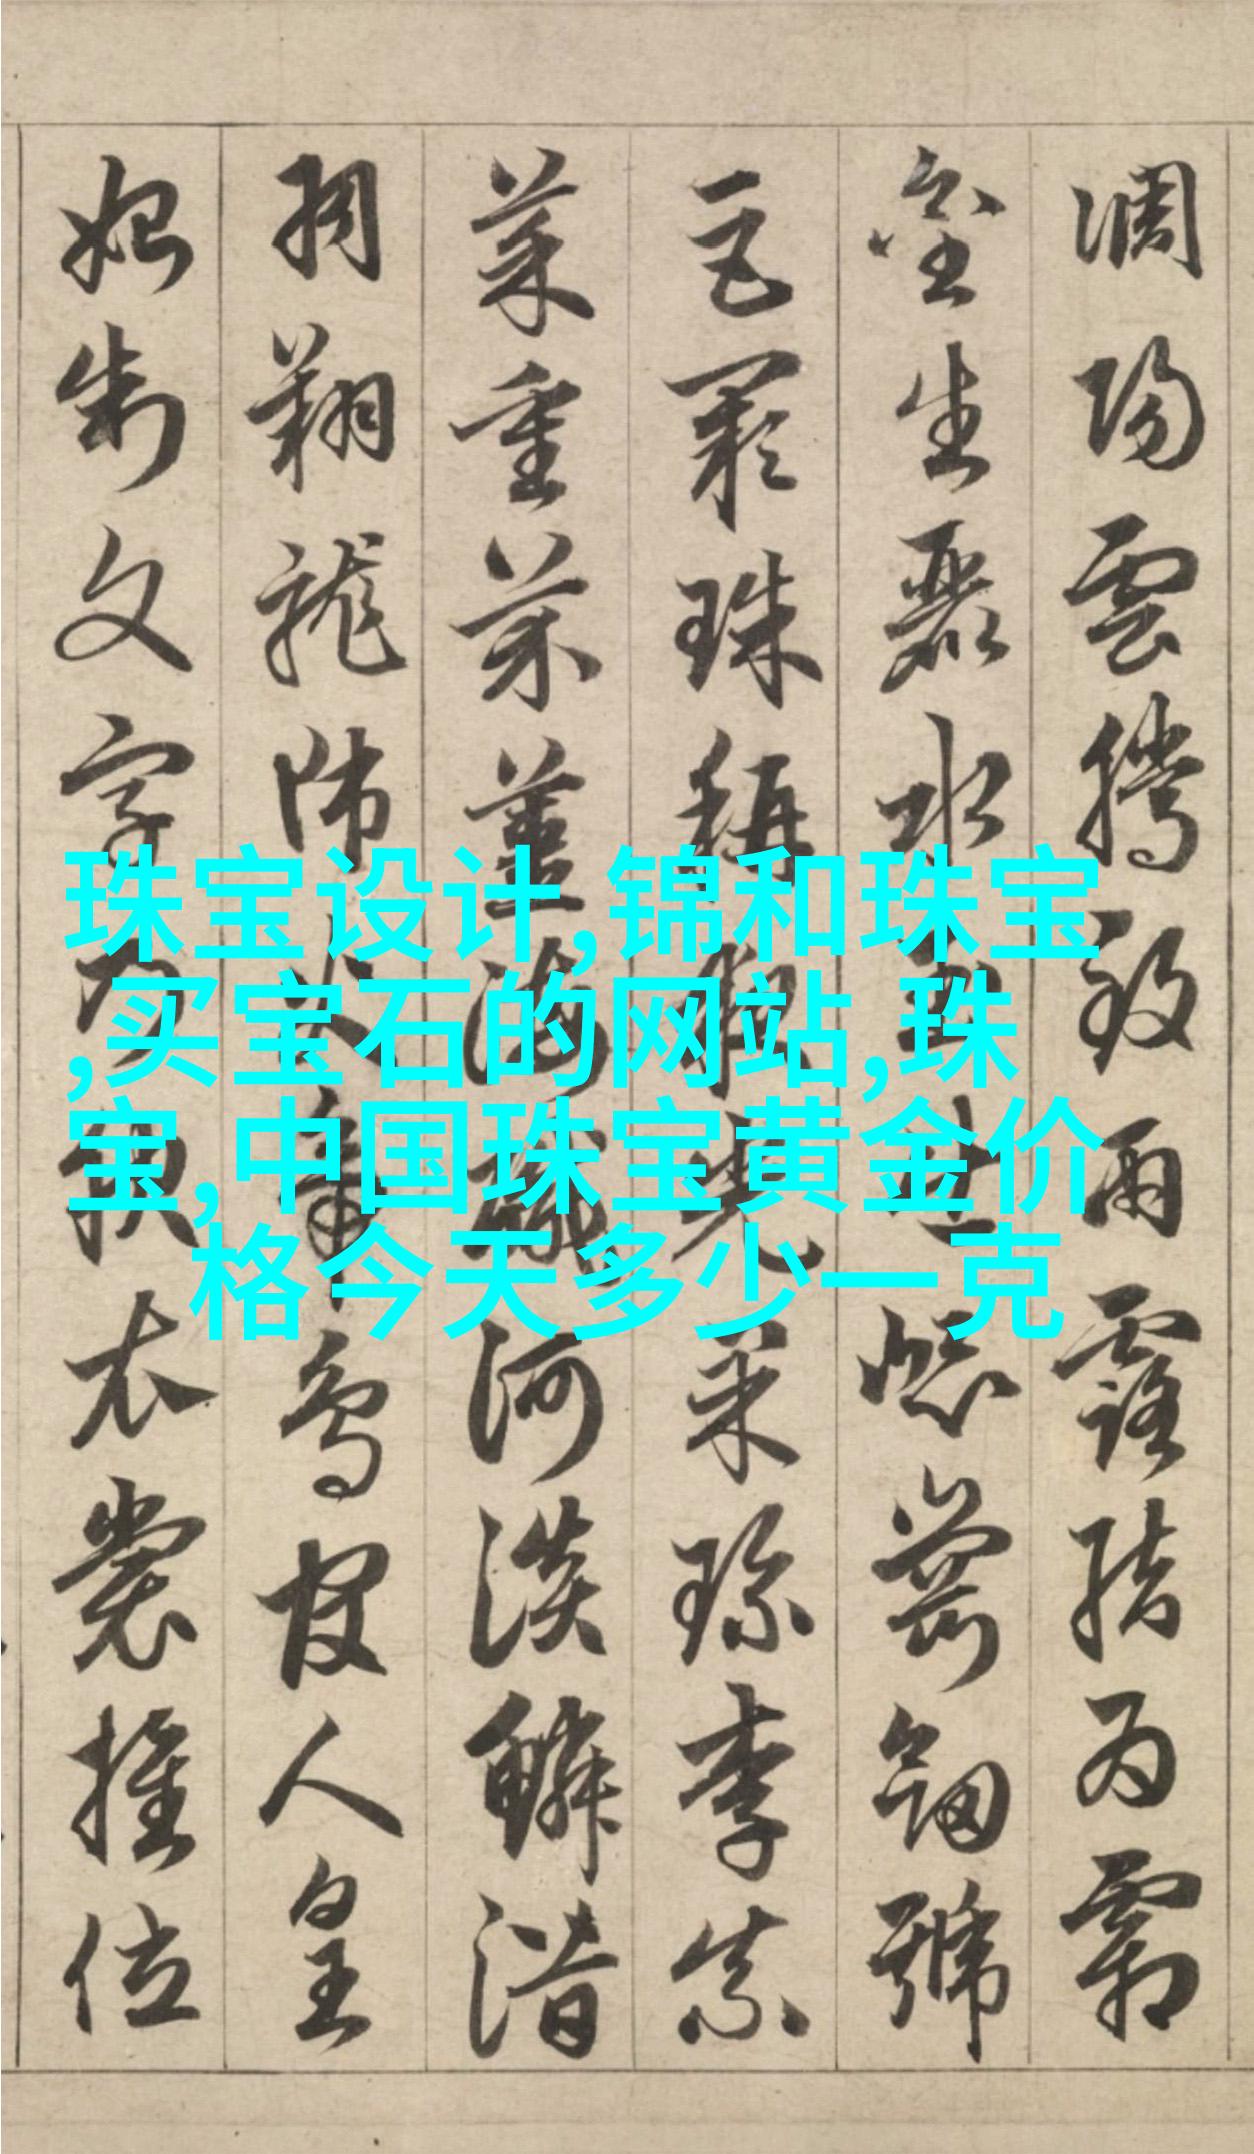 調陽雲騰致雨露結為霜
金生麗水玉出崐崗劍號
巨闕珠稱夜光果珍李柰
菜重芥薑海鹹河淡鱗潛
羽翔龍師火帝鳥官人皇
始制文字乃服衣裳推位
珠宝设计,锦和珠宝
,买宝石的网站,珠
宝,中国珠宝黄金价
格今天多少一克